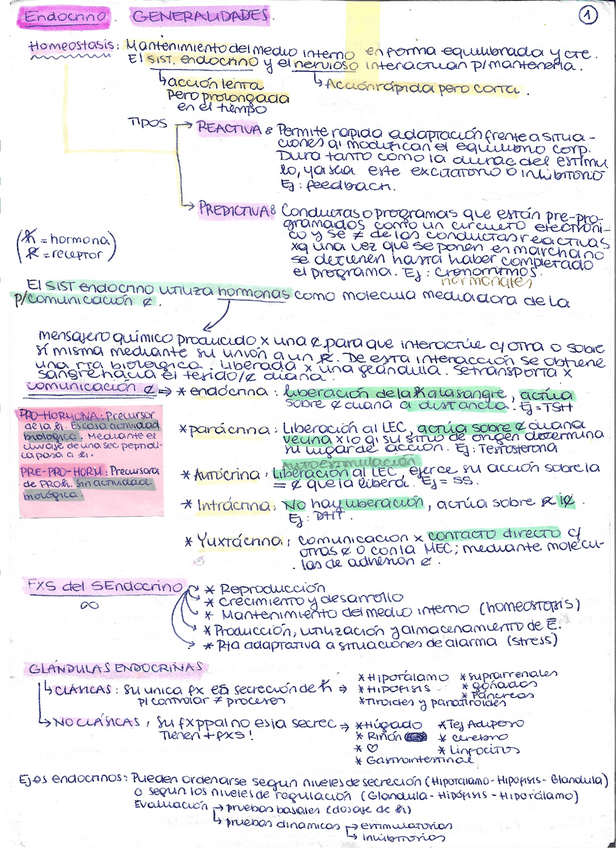 Endocrino GENERALIDADES. 1
Homeostasis: Mantenimiento del medio interno en forma equilibrada y cte.
El SIST. endocrino y el nervioso interactúan p/mantenerla.
↳ acción lenta pero prolongada en el tiempo
↳ Acción rápida pero corta.
TIPOS
→ REACTIVA: Permite rápida adaptación frente a situa-
ciones q modifican el equilibrio corp.
Dura tanto como la durac del estímu
lo, ya sea este excitatorio o inhibitorio
Ej: feedback.
→ PREDICTIVA: Conductas o programas que están pre-pro-
gramados como un circuito electróni-
co y se ≠ de las conductas reactivas
xq una vez que se ponen en marcha no
se detienen hasta haber completado
el programa. Ej: cronorritmos.
hormonales
(ℏ = hormona)
(R = receptor)
El SIST endocrino utiliza hormonas como molécula mediadora de la
p/comunicación ¢.
mensajero químico producido x una ¢ para que interactúe c/otra o sobre
sí misma mediante su unión a un R. De esta interacción se obtiene
una rta biológica. Liberada x una glándula. Se transporta x
sangre hacia el tejido/¢ diana.
Comunicación ¢ → * endócrina: liberación de la ℏ a la sangre, actúa
sobre ¢ diana a distancia. Ej = TSH
PRO-HORMONA: Precursor
de la ℏ. Escasa actividad
biológica. Mediante el
clivaje de una sec peptídi
ca pasa a ℏ.
PRE-PRO-HORM: Precursora
de PROℏ. Sin actividad
biológica.
* parácrina: Liberación al LEC, actúa sobre ¢ diana
vecina x lo q su sitio de origen determina
su lugar de acción. Ej: Testosterona
Autoestimulación
* Autócrina: Liberación al LEC, ejerce su acción sobre la
= ¢ que la liberó. Ej = SS.
* Intrácrina: No hay liberación, actúa sobre R i¢.
Ej: DHT.
* Yuxtácrina: comunicación x contacto directo c/
otras ¢ o con la MEC; mediante molécu-
las de adhesión ¢.
FXS del SEndocrino
∞
* Reproducción
* Crecimiento y desarrollo
* Mantenimiento del medio interno (homeostasis)
* Producción, utilización y almacenamiento de E.
* Rta adaptativa a situaciones de alarma (stress)
GLÁNDULAS ENDOCRINAS
↳ CLÁSICAS: su única fx es secreción de ℏ →
p/controlar ≠ procesos
* Hipotálamo * suprarrenales
* Hipófisis * gónadas
* Tiroides y paratiroides * Páncreas
↳ NO CLÁSICAS, su fx ppal no es la secrec →
Tienen + fxs!
* Hígado * Tej Adiposo
* Riñón * cerebro
* ♡ * Linfocitos
* Gastrointestinal
Ejes endocrinos: Pueden ordenarse según niveles de secreción (Hipotálamo-Hipófisis-Glándula)
o según los niveles de regulación (Glándula-Hipófisis-Hipotálamo)
Evaluación → pruebas basales (dosaje de ℏ)
↳ pruebas dinámicas → estimulatorias
↳ inhibitorias